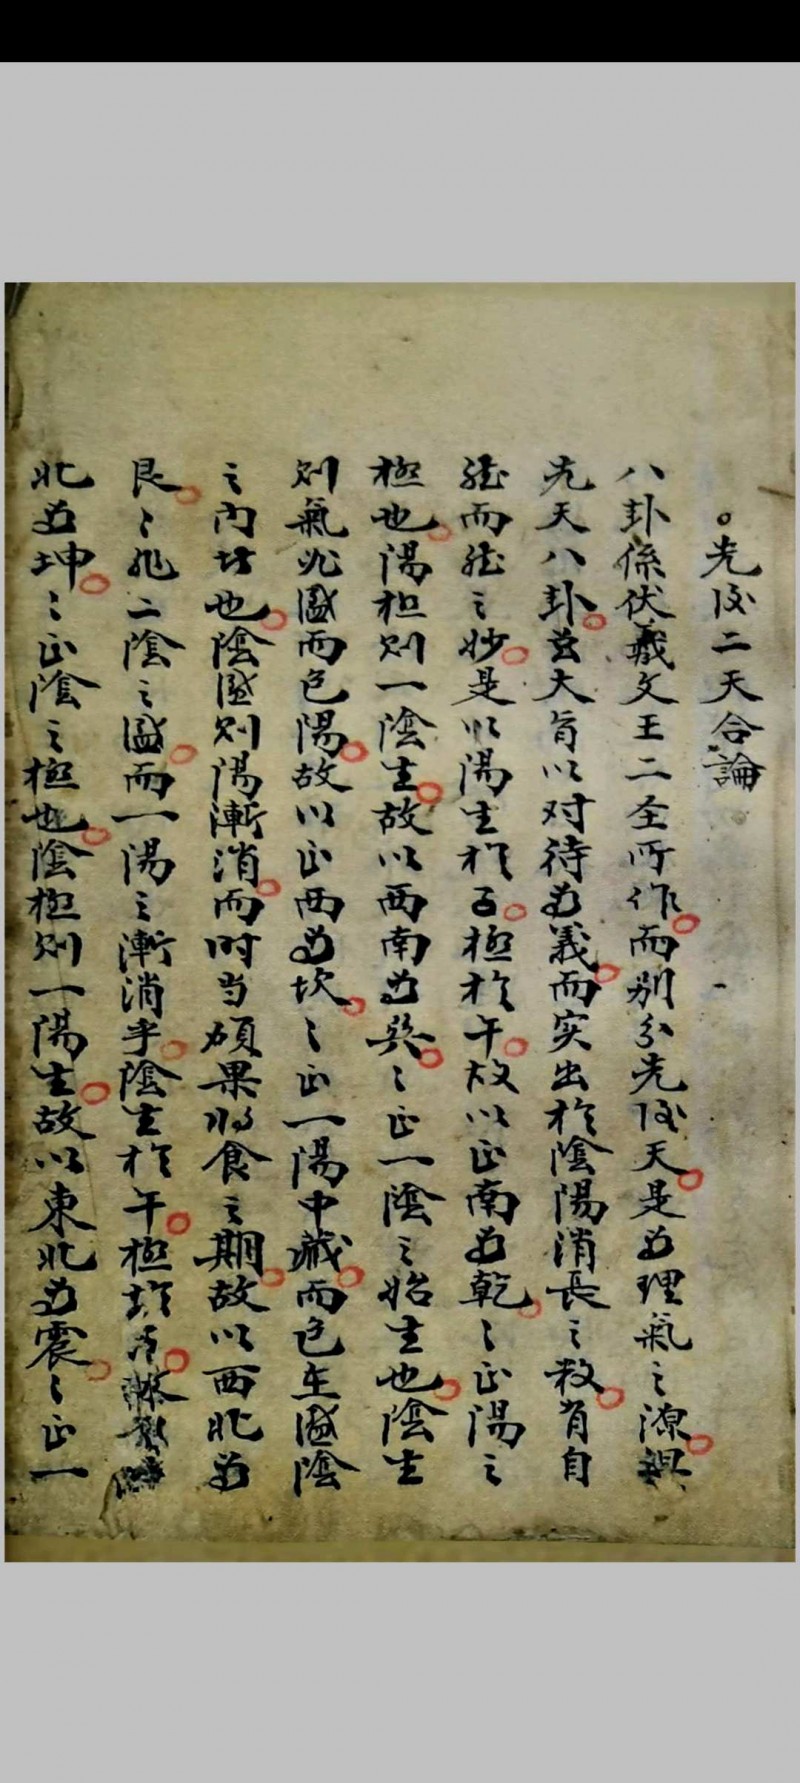 。先后二天合論
八卦係伏羲文王二全所作。而別分先后天。是為理氣之源。
先天八卦。其大旨以对待為義。而实出於陰陽消長之数。有自
然而然之妙。是以陽生於子。極於午。故以正南為乾。〻正陽之
極也。陽極則一陰生。故以西南為巽。〻正一陰之始生也。陰生
則氣必盛而包陽。故以正西為坎。〻正一陽中藏。而包在盛陰
之內故也。陰盛則陽漸消。而时当碩果將食之期。故以西北為
艮。〻非二陰之盛。而一陽之漸消乎。陰生於午。極於
北為坤。〻正陰之極也。陰極則一陽生。故以東北為震。〻正一